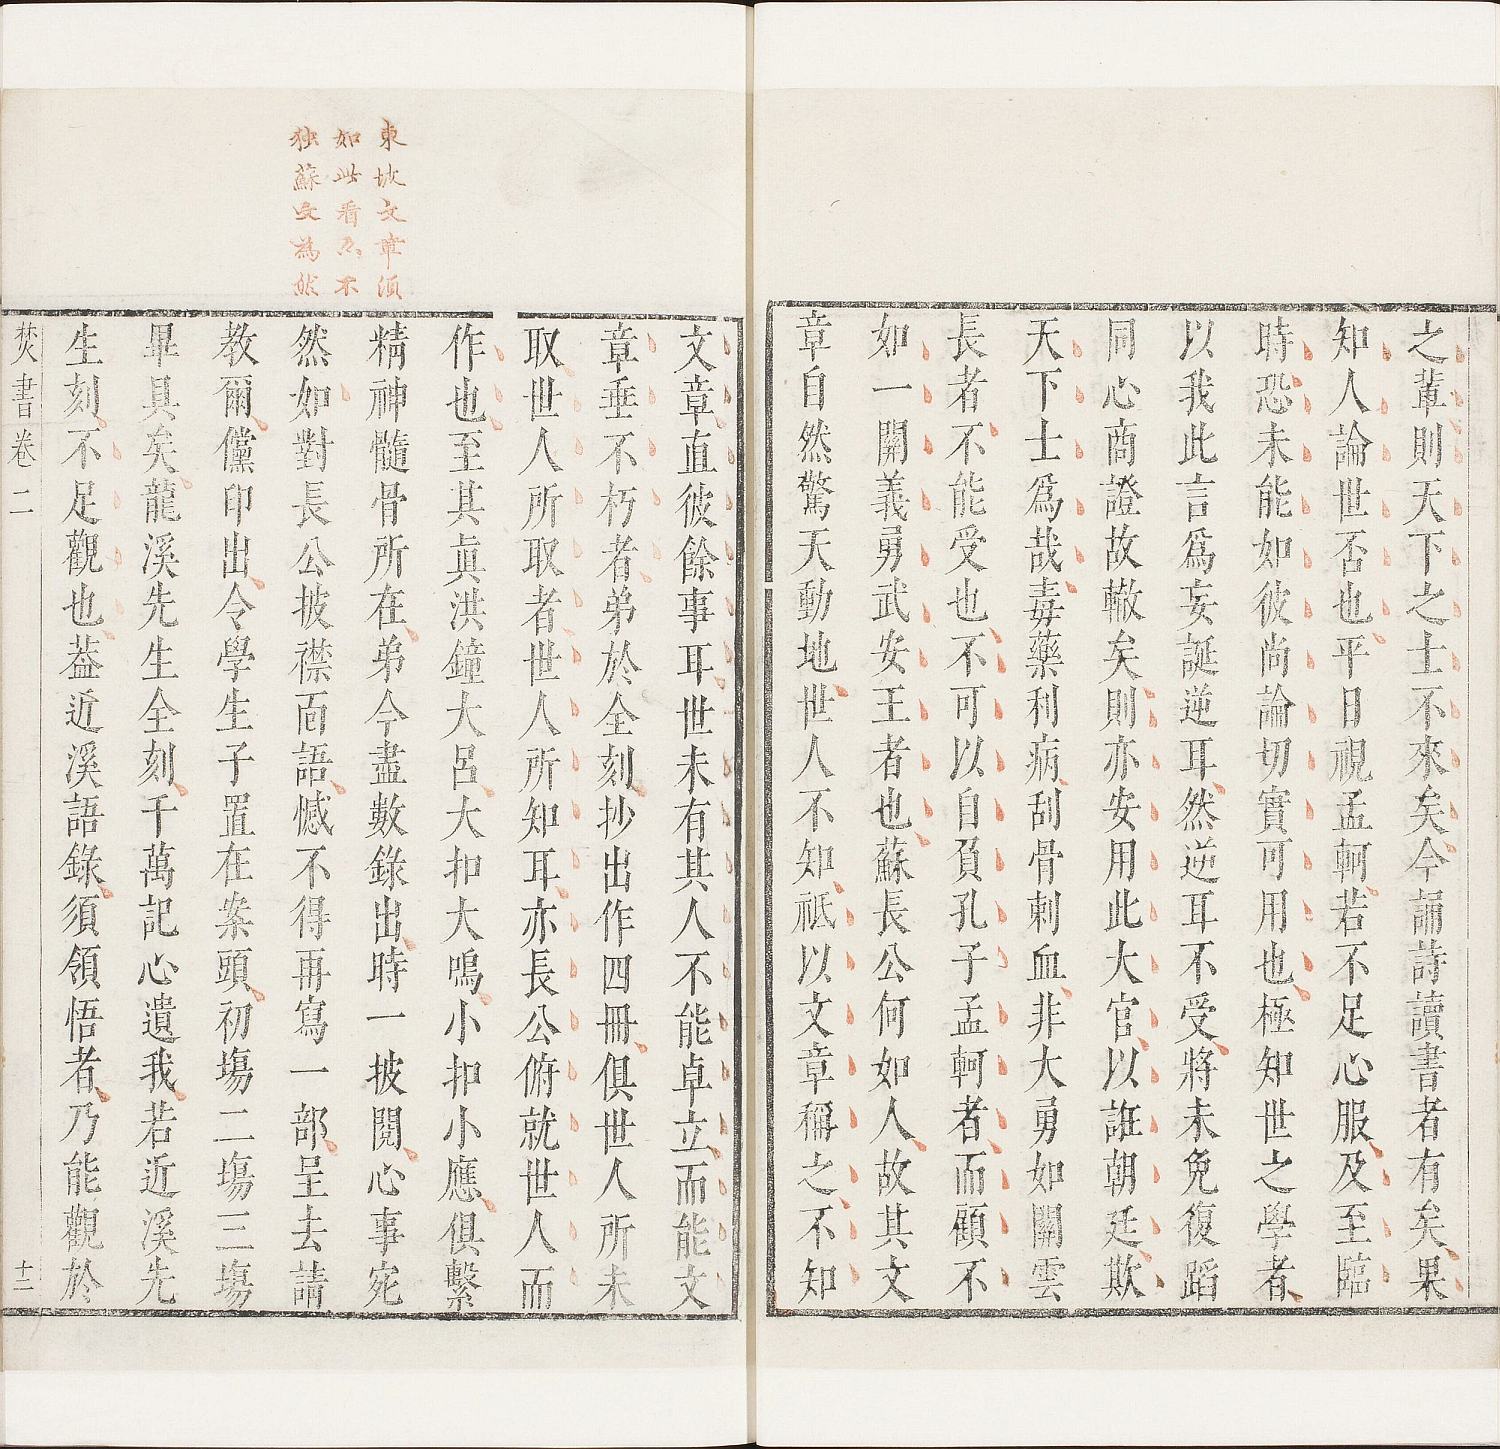 之輩則天下之士不來矣今誦詩讀書者有矣果
知人論世否也平日視孟軻若不足心服及至臨
時恐未能如彼尚論切實可用也極知世之學者
以我此言爲妄誕逆耳然逆耳不受將未免復蹈
同心商證故轍矣則亦安用此大官以誑朝廷欺
天下士爲哉毒藥利病刮骨刺血非大勇如關雲
長者不能受也不可以自負孔子孟軻者而顧不
如一關義勇武安王者也蘇長公何如人故其文
章自然驚天動地世人不知祇以文章稱之不知
東坡文章須
如此看亦不
独蘇文為然
文章直彼餘事耳世未有其人不能卓立而能文
章垂不朽者弟於全刻抄出作四冊俱世人所未
取世人所取者世人所知耳亦長公俯就世人而
作也至其眞洪鐘大呂大扣大鳴小扣小應俱繫
精神髓骨所在弟今盡數錄出時一披閱心事宛
然如對長公披襟面語憾不得再寫一部呈去請
教爾儻印出令學生子置在案頭初塲二塲三塲
畢具矣龍溪先生全刻千萬記心遺我若近溪先
生刻不足觀也葢近溪語錄須領悟者乃能觀於
焚書卷二
十二